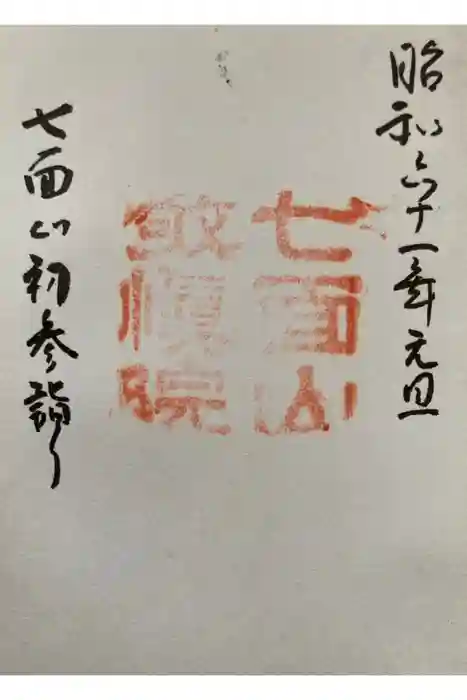 昭和六十一年元旦
七面山
敬慎院
七面山初参詣り